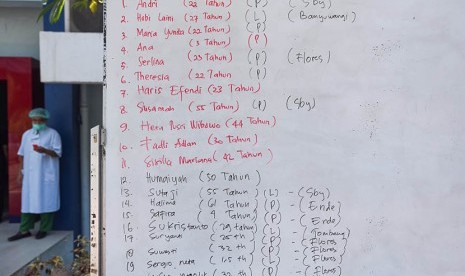 1. Andri (22 Tahun) (P) (Sby)
2. Hobi Laini (27 Tahun) (L) (Banyuwangi)
3. Maria Yunda (22 Tahun) (P)
4. Ana (3 Tahun) (P)
5. Serlina (23 Tahun) (P) (Flores)
6. Theresia (22 Tahun (P)
7. Haris Efendi (23 Tahun)
8. Susanah (55 Tahun) (P) (Sby)
9. Heru Wibowo (44 Tahun)
10. Fadli Adlan (30 Tahun)
11. Mariana (42 Tahun)
12. Humaiyah (50 Tahun)
13. Sutaji (55 Tahun) (L) - (Sby)
14. Halima (61 Tahun) (P) - (Ende)
15. Safira (4 Tahun) (P) - (Ende)
16. Sukristanto (29 tahun) (L) - (Jombang)
17 Suryani (25 th) (P) - (Flores)
18 Suwati (32 th) (P) - (Flores)
19 Sergio (1.5 th) (L) - (Flores)
(P) - (Flores)